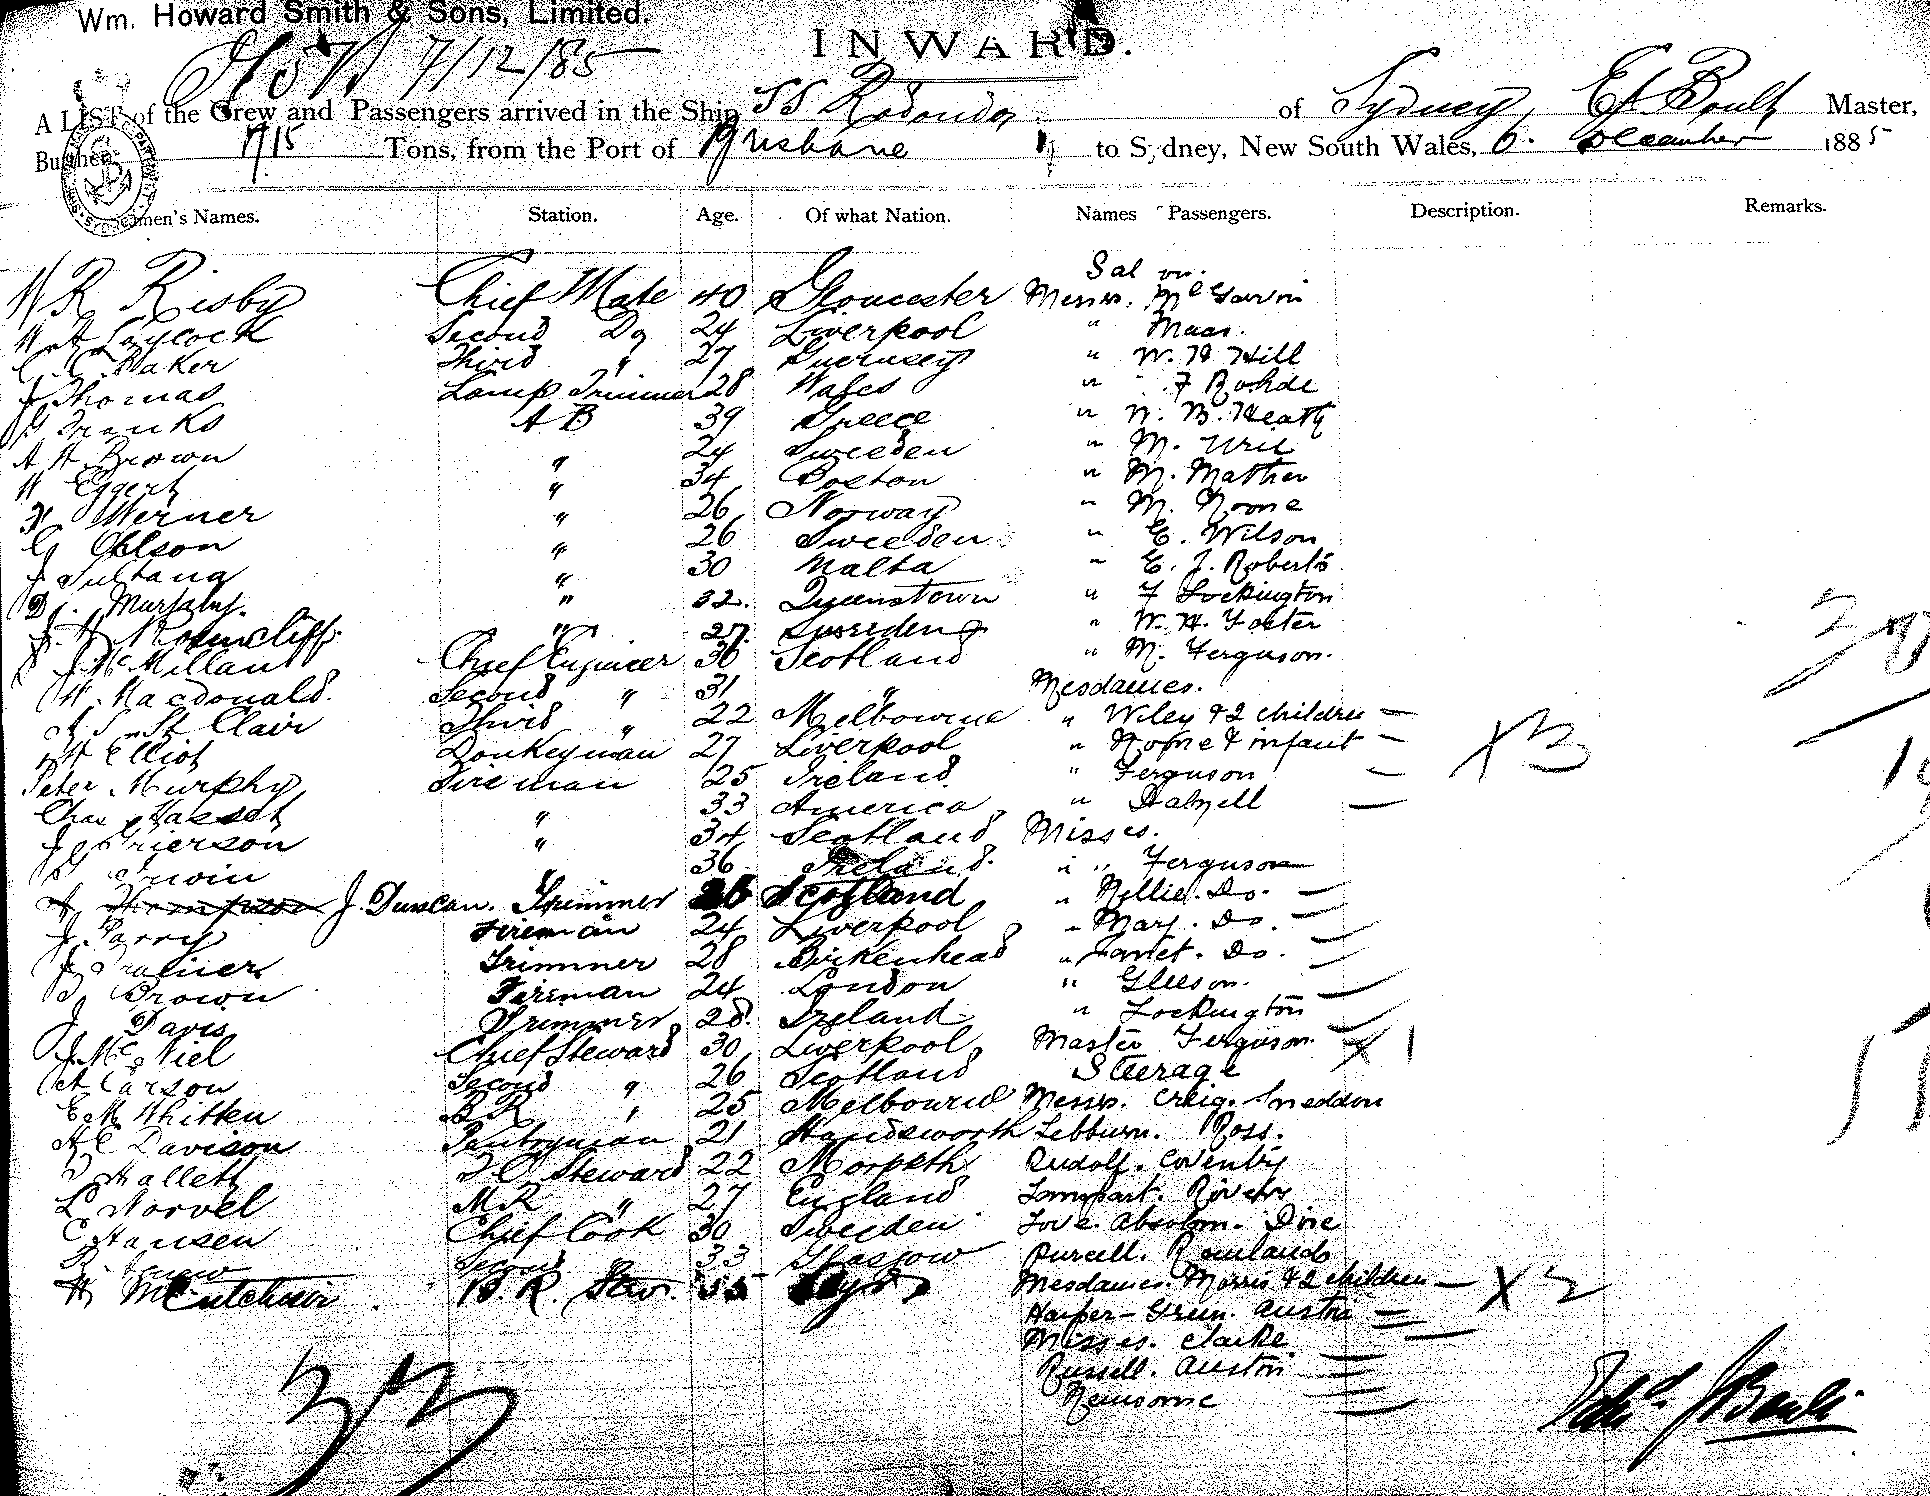 Wm. Howard Smith & Sons, Limited.
7/12/85
INWARD.
A LIST of the Crew and Passengers arrived in the Ship SS Rodondo of Sydney, Master,
Burthen 715 Tons, from the Port of Brisbane to Sydney, New South Wales, 6. December 1885
Names. Station. Age. Of what Nation. Names Passengers. Description. Remarks.
Saloon.
W R Risby Chief Mate 40 Gloucester Messrs. McGarvin
Laycock Second Do 24 Liverpool " Maas.
C. C. Baker Third " 27 Guernsey " W. H. Hill
J Thomas Lamp Trimmer 28 Wales " F Rohde
Franks A B 39 Greece " W. B. Heath
A H Brown " 24 Sweeden " M.
W Eggert " 34 Boston " M. Mather
H Werner " 26 Norway " M. Rome
G Ohlson " 26 Sweeden " E. Wilson
J Sultana " 30 Malta " E. J. Roberts
D. Murphy. " 32. Queenstown " F Lockington
J. H. " 27. Sweeden " W. H. Foster
J. McMillan Chief Engineer 36 Scotland " M. Ferguson.
W. Macdonald. Second " 31 " Mesdames.
A. S. St Clair Third " 22 Melbourne " Wiley & 2 children
W Elliot Donkeyman 27 Liverpool " Rome & infant X 3
Peter Murphy Fireman 25 Ireland. " Ferguson
Chas Hasset " 33 America " Dalzell
J Grierson " 34 Scotland Misses.
Irwin " 36 Ireland. " Ferguson
A Thompson J. Duncan. Trimmer 26 Scotland " Nellie. Do.
J. Parry Fireman 24 Liverpool " Mary. Do.
J. Trimmer 28 Birkenhead " Janet. Do.
Brown Fireman 24 London " Gleeson.
J Davis Trimmer 28. Ireland " Lockington
J. McNiel Chief Steward 30 Liverpool Master Ferguson. X 1
A Carson Second " 26 Scotland Steerage
E. M. Whitten B R " 25 Melbourne Messrs. Creig. Sneddon
H C Davison Pantryman 21 Handsworth Ross.
Hallett Steward 22 Morpeth Rudolf. Coventry
L Norvel M R " 27 England
C Hansen Chief Cook 30 Sweeden Love. Absolom.
Second 33 Glasgow Purcell. Rowlands
H McCutcheon B. R. Stew. 35 Mesdames. Morris & 2 children X 2
Harper - Green.
Misses. Clarke
Russell. Austin
Ransome